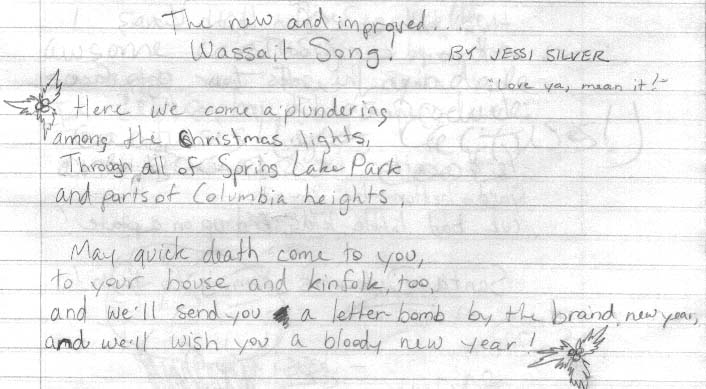 The new and improved...
Wassail Song! BY JESSI SILVER
"Love ya, mean it!"
Here we come a'plundering
among the Christmas lights,
Through all of Spring Lake Park
and parts of Columbia heights.
May quick death come to you,
to your house and kinfolk, too,
and we'll send you a letter-bomb by the brand new year,
and we'll wish you a bloody new year!